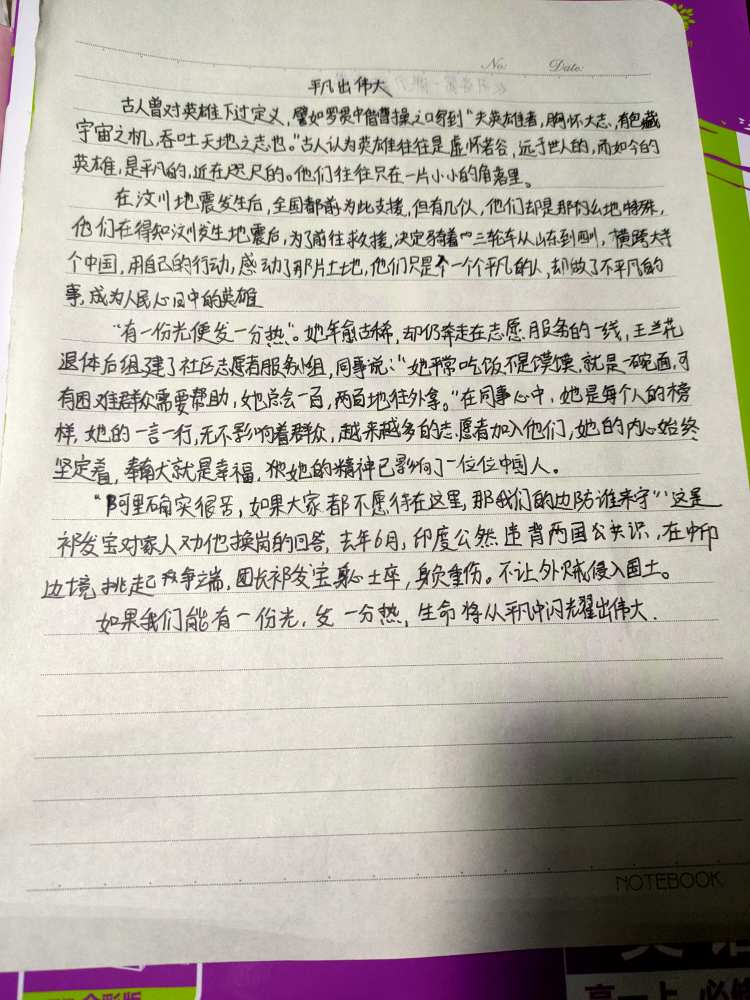 No:   Date:
平凡出伟大
古人曾对英雄下过定义，譬如罗贯中借曹操之口写到"夫英雄者，胸怀大志，有包藏
宇宙之机，吞吐天地之志也。"古人认为英雄往往是虚怀若谷，远于世人的，而如今的
英雄，是平凡的，近在咫尺的。他们往往只在一片小小的角落里。
在汶川地震发生后，全国都前为此支援，但有几似，他们却是那么地特殊，
他们在得知汶川发生地震后，为了前往救援，决定骑着三轮车从山东到四川，横跨大半
个中国，用自己的行动，感动了那片土地，他们只是一个个平凡的人，却做了不平凡的
事，成为人民心目中的英雄
"有一份光便发一分热"。她年愈古稀，却仍奔走在志愿服务的一线，王兰花
退休后组建了社区志愿者服务小组，同事说："她平常吃饭不是馍馍，就是一碗面，可
有困难群众需要帮助，她总会一百，两百地往外拿。"在同事心中，她是每个人的榜
样，她的一言一行，无不影响着群众，越来越多的志愿者加入他们，她的内心始终
坚定着，奉献就是幸福，她的精神已影响了一位位中国人。
"阿里确实很苦，如果大家都不愿待在这里，那我们的边防谁来守"这是
祁发宝对家人劝他换岗的回答，去年6月，印度公然违背两国公共识，在中印
边境挑起争端，团长祁发宝身心士卒，身负重伤。不让外贼侵入国土。
如果我们能有一份光，发一分热，生命将从平凡中闪光耀出伟大.
NOTEBOOK
高一上 必